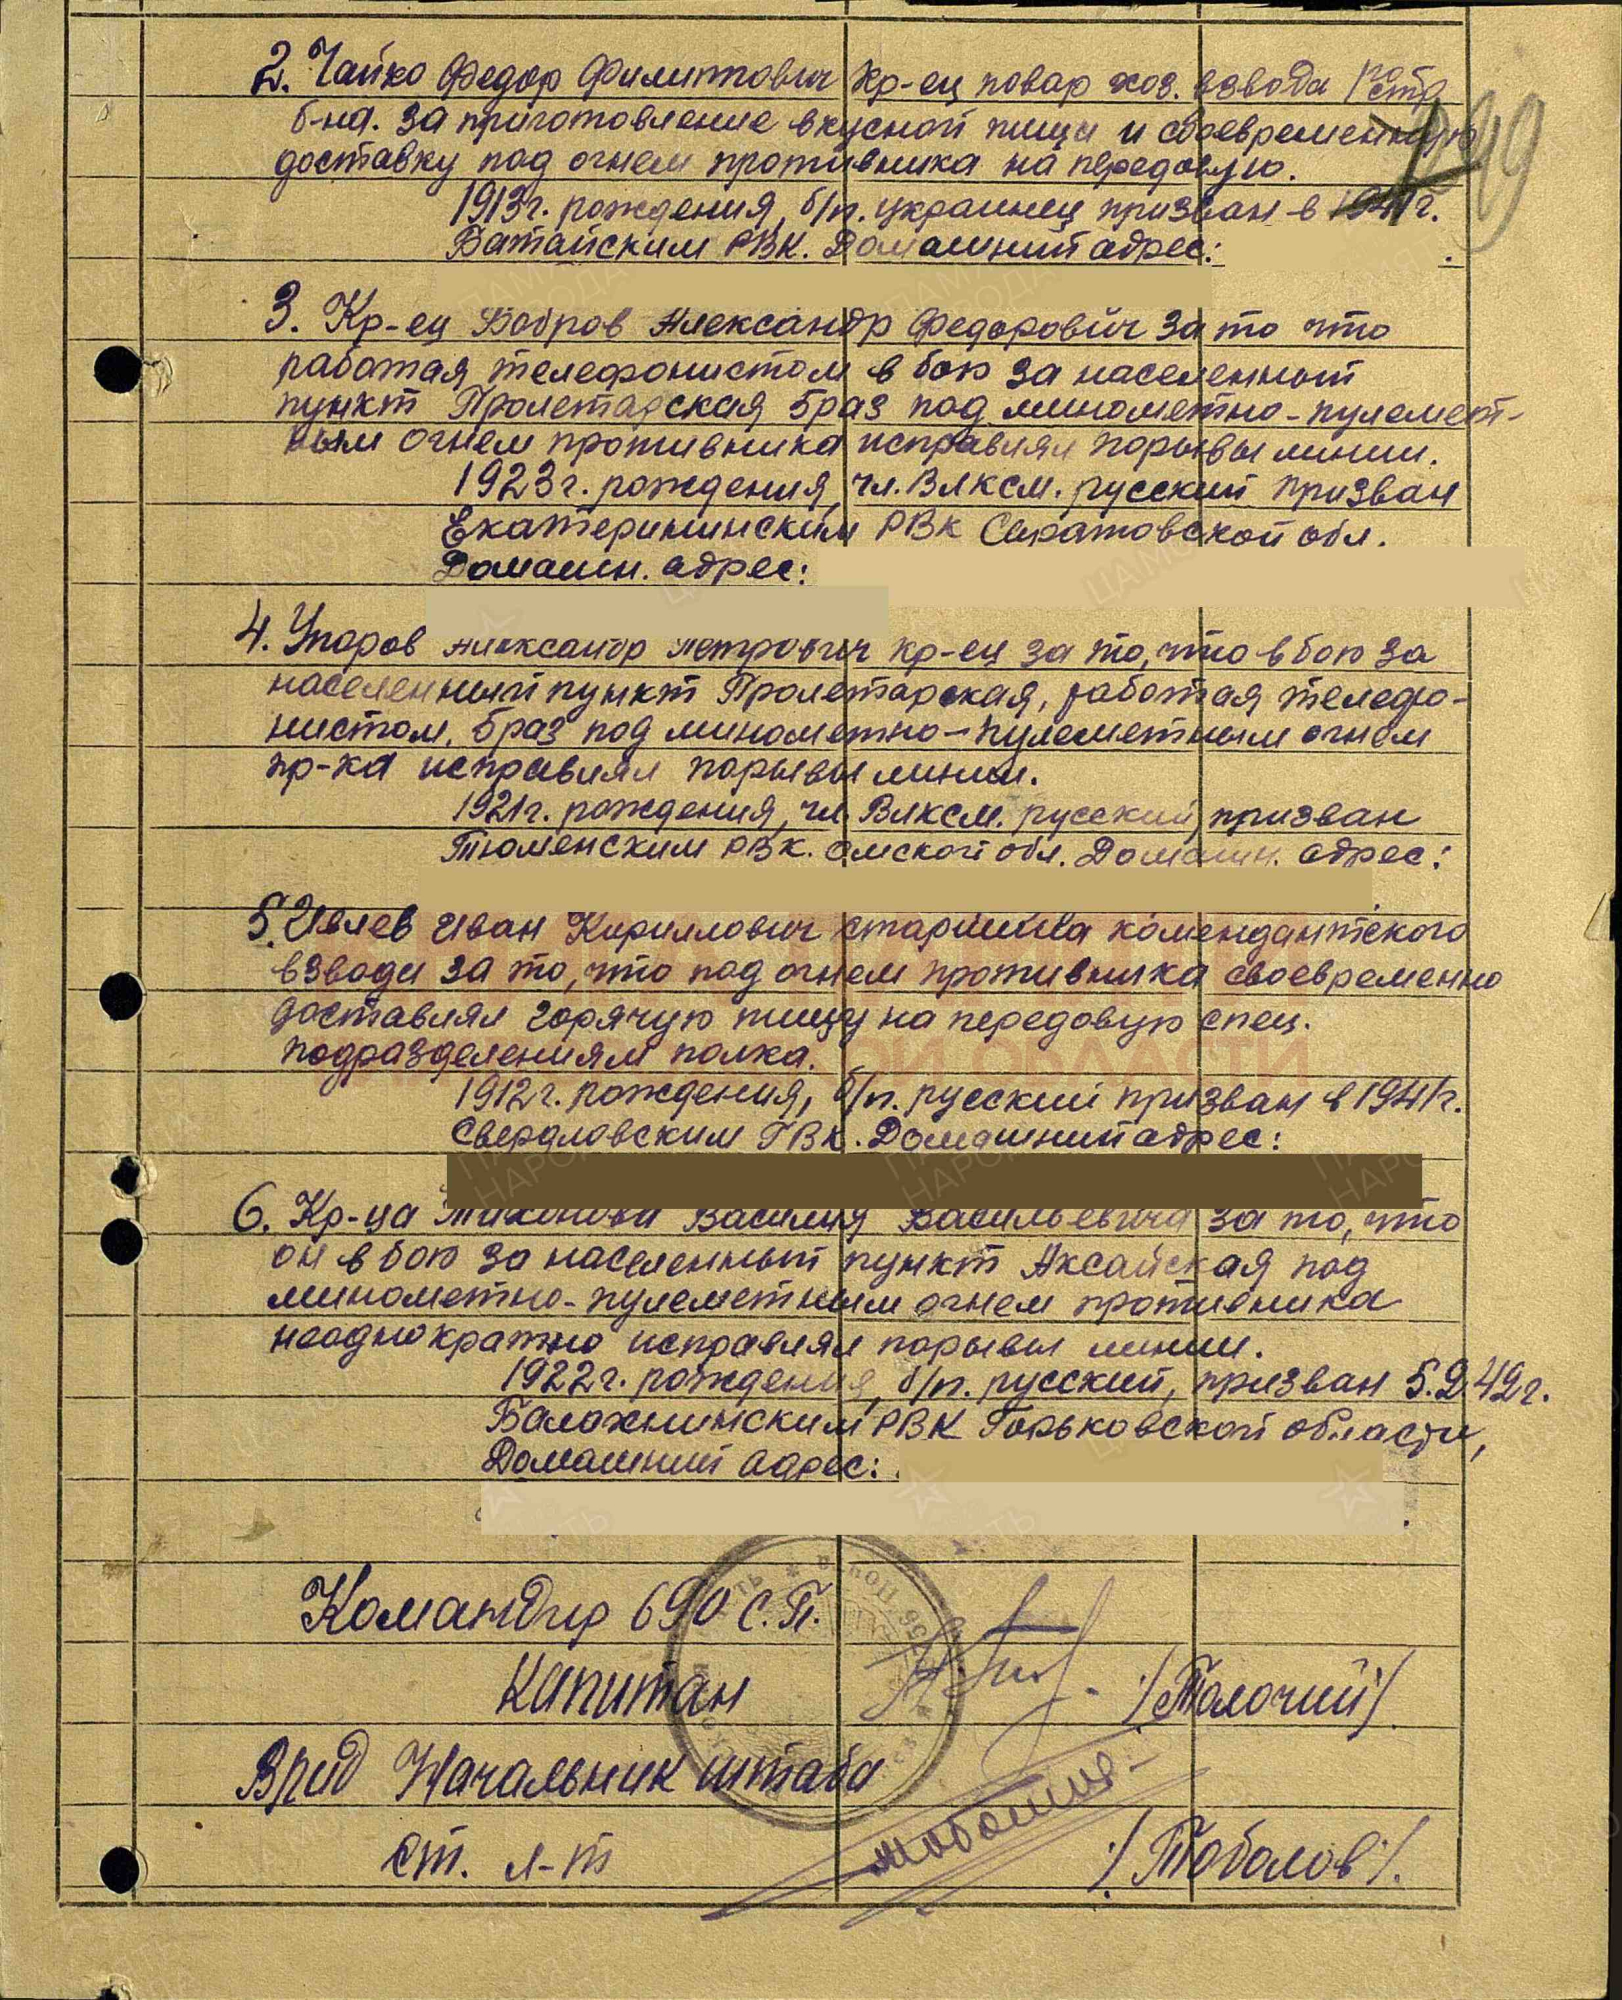 2. Чайко Федор Филиппович кр-ец повар хоз. взвода 1го стр.
б-на. За приготовление вкусной пищи и своевременную
доставку под огнем противника на передовую.
1913г. рождения, б/п. украинец призван в 1941г.
Батайским РВК. Домашний адрес:
3. Кр-ец Бобров Александр Федорович за то что
работая телефонистом в бою за населенный
пункт Пролетарская 5 раз под минометно-пулемет-
ным огнем противника исправлял порывы линии.
1923г. рождения, чл. ВЛКСМ. русский призван
Екатерининским РВК Саратовской обл.
Домашн. адрес:
4. Упоров Александр Петрович кр-ец за то, что в бою за
населенный пункт Пролетарская, работая телефо-
нистом, 5 раз под минометно-пулеметным огнем
пр-ка исправлял порывы линии.
1921г. рождения, чл. ВЛКСМ. русский, призван
Тюменским РВК. Омской обл. Домашн. адрес:
5. Ивлев Иван Кириллович старшина комендантского
взвода за то, что под огнем противника своевременно
доставлял горячую пищу на передовую спец.
подразделениям полка.
1912г. рождения, б/п. русский призван в 1941г.
Свердловским ГВК. Домашний адрес:
6. Кр-ца Тихонова Василия Васильевича за то, что
он в бою за населенный пункт Аксайская под
минометно-пулеметным огнем противника
неоднократно исправлял порывы линии.
1922г. рождения, б/п. русский, призван 5.9.42г.
Балахнинским РВК Горьковской области,
Домашний адрес:
Командир 690 С.П.
Капитан /Толочий/.
Врид Начальник штаба
ст. л-т /Тоболов/.